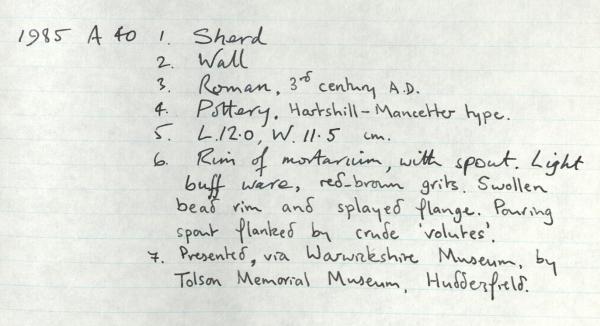 1985 A 40 1. Sherd
2. Wall
3. Roman, 3rd century A.D.
4. Pottery, Hartshill-Mancetter type.
5. L.12.0, W. 11.5 cm.
6. Rim of mortarium, with spout. Light
buff ware, red-brown grits. Swollen
bead rim and splayed flange. Pouring
spout flanked by crude 'volutes'.
7. Presented, via Warwickshire Museum, by
Tolson Memorial Museum, Hudderzfield.